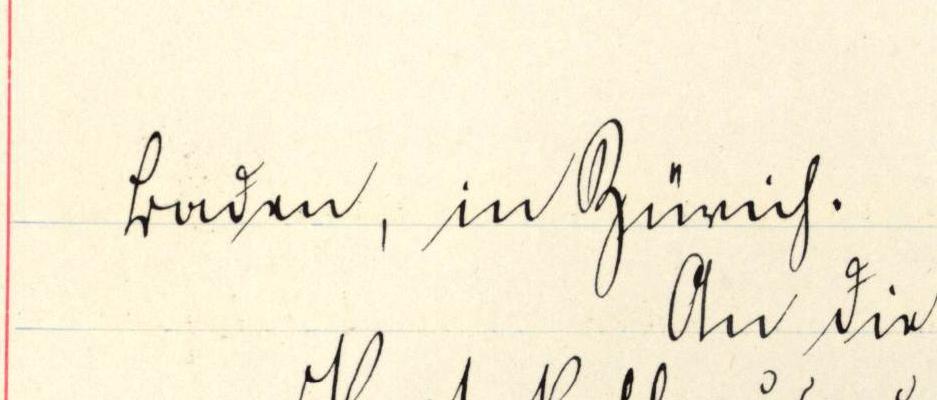 Baden, in Zürich.
An die